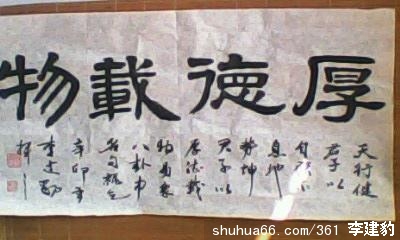 厚德載物
天行健
君子以
自强不
息地
势坤
君子以
厚德载
八卦中
辛卯
李建
shuhua66.com/361 李建豹